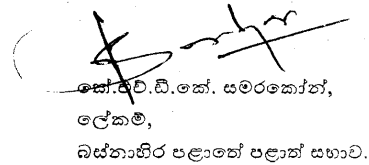 සේ.එච්.ඩී.කේ. සමරකෝන්,
ලේකම්,
බස්නාහිර පළාතේ පළාත් සභාව.